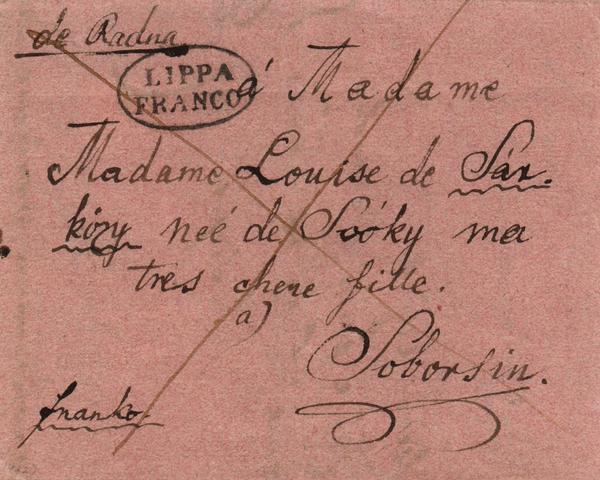 de Radna
LIPPA
FRANCO
á Madame
Madame Louise de Sár.
közy neé de Soóky ma
tres chere fille.
a)
Soborsin.
franko.